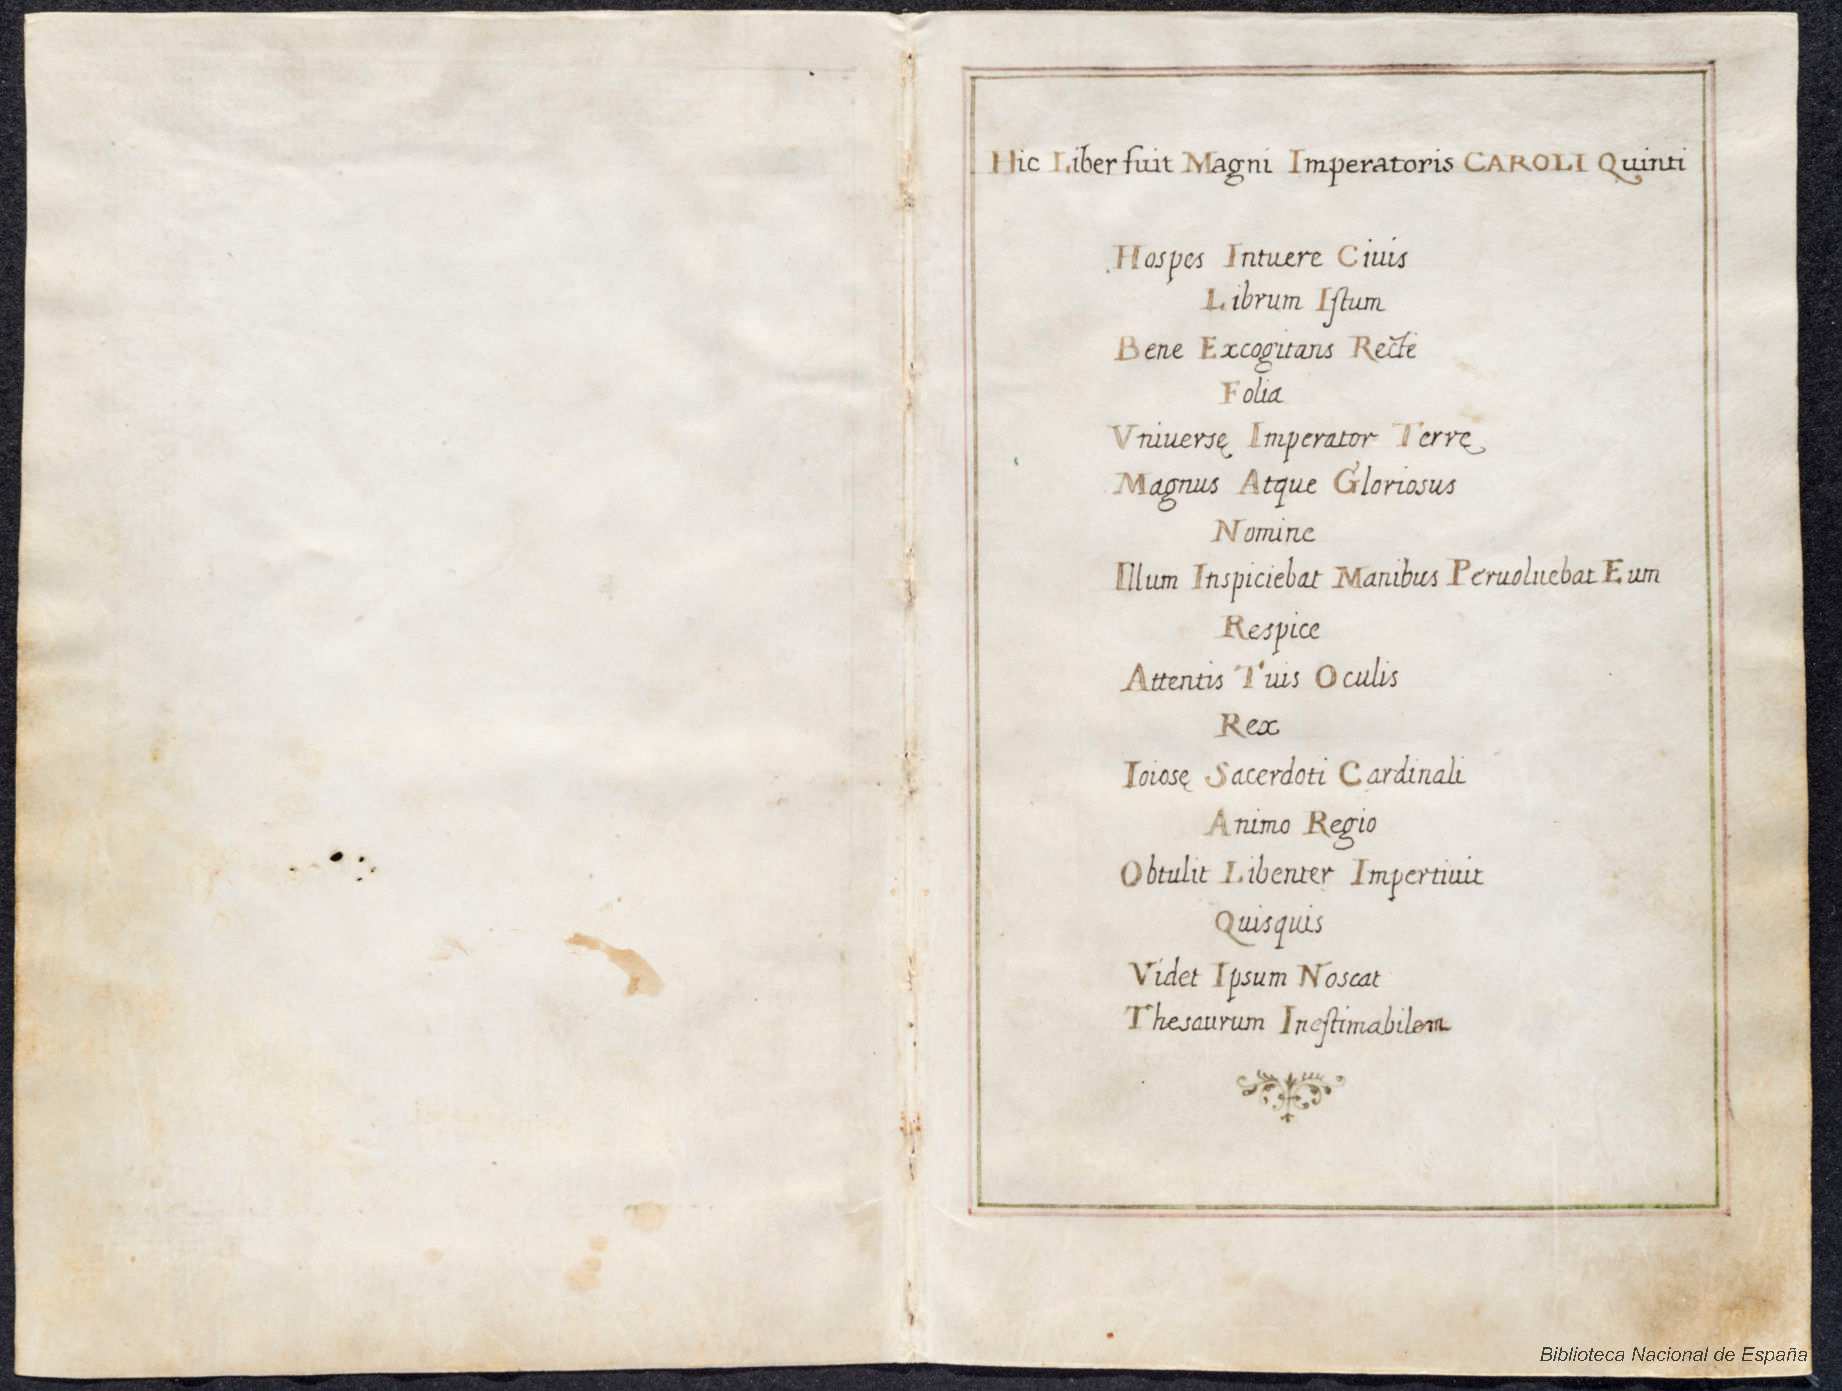 Hic Liber fuit Magni Imperatoris CAROLI Quinti
Hospes Intuere Ciuis
Librum Istum
Bene Excogitans Recte
Folia
Vniuersę Imperator Terrę
Magnus Atque Gloriosus
Nomine
Illum Inspiciebat Manibus Peruoluebat Eum
Respice
Attentis Tuis Oculis
Rex
Ioiosę Sacerdoti Cardinali
Animo Regio
Obtulit Libenter Impertiuit
Quisquis
Videt Ipsum Noscat
Thesaurum Inestimabilem
Biblioteca Nacional de España